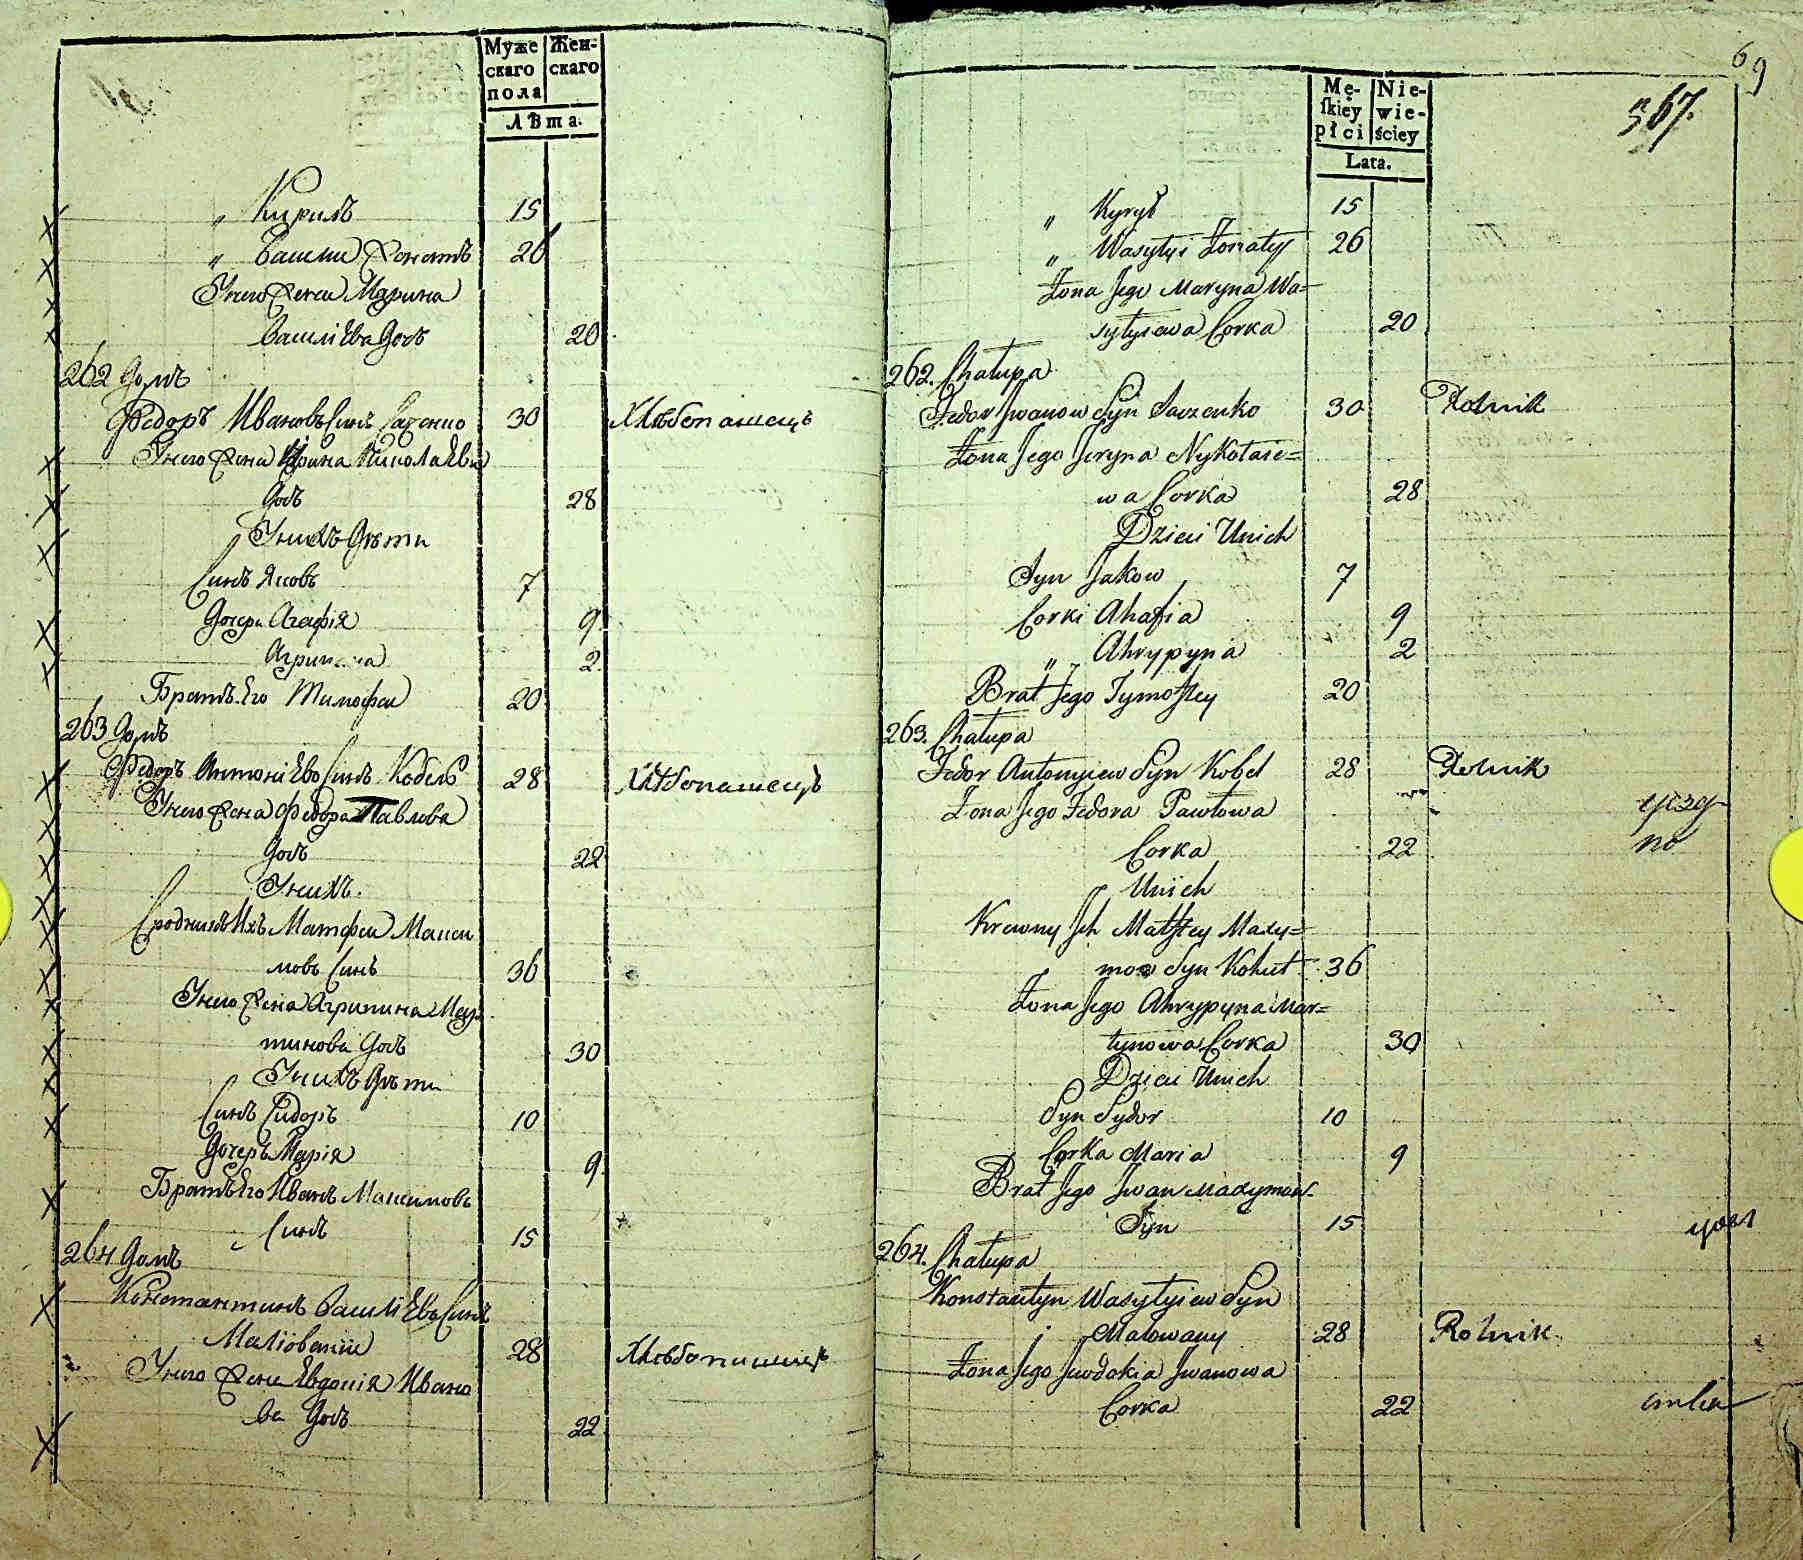 Муже
скаго
пола
Жен-
скаго
Лѣта.
„ Кирилъ 15
„ Василій Женатъ 26
У него Жена Марина
Василіева Дочь 20
262 Домъ
Федоръ Ивановъ Синъ Савченко 30 Хлѣбопашецъ
У него Жена Ирина Николаева
Дочь 28
У нихъ Дѣти
Синъ Яковъ 7
Дочери Агафія 9
Агрипина 2
Братъ Его Тимофей 20
263 Домъ
Федоръ Антоніевъ Синъ Кобель 28 Хлѣбопашецъ
У него Жена Федора Павлова
Дочь 22
У нихъ
Сродникъ Ихъ Матфей Макси
мовъ Синъ 36
У него Жена Агрипина Мар
тинова Дочь 30
У нихъ Дѣти
Синъ Сидоръ 10
Дочеръ Марія 9
Братъ Его Иванъ Максимовъ
Синъ 15
264 Домъ
Константинъ Василіевъ Синъ
Маліований 28 Хлѣбопашецъ
У него Жена Евдокія Ивано
ва Дочь 22
69
367.
Mę-
skiéy
płci
Nie-
wie-
ściey
Lata.
„ Kyryło 15
„ Wasylyi Żonaty 26
Żona Jego Maryna Wa=
sylyiewa Corka 20
262. Chałupa
Fedor Iwanow Syn Sawzenko 30 Rolnik
Żona Jego Jeryna Nykołaie=
wa Corka 28
Dzieci Unich
Syn Jakow 7
Corki Ahafia 9
„ Ahrypyna 2
Brat Jego Tymofiey 20
263. Chałupa
Fedor Antonyiew Syn Kobel 28 Rolnik
Żona Jego Fedora Pawłowa
Corka 22
Unich
Krewny Ich Matfiey Maxy=
mow Syn Kohut 36
Żona Jego Ahrypyna Mar=
tynowa Corka 30
Dzieci Unich
Syn Sydor 10
Corka Maria 9
Brat Jego Iwan Maxymow
Syn 15
264. Chałupa
Konstantyn Wasylyiew Syn
Malowany 28 Rolnik
Żona Jego Jewdokia Iwanowa
Corka 22